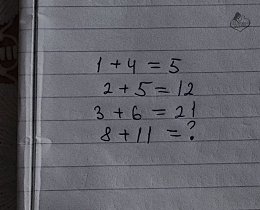 1 + 4 = 5
2 + 5 = 12
3 + 6 = 21
8 + 11 = ?